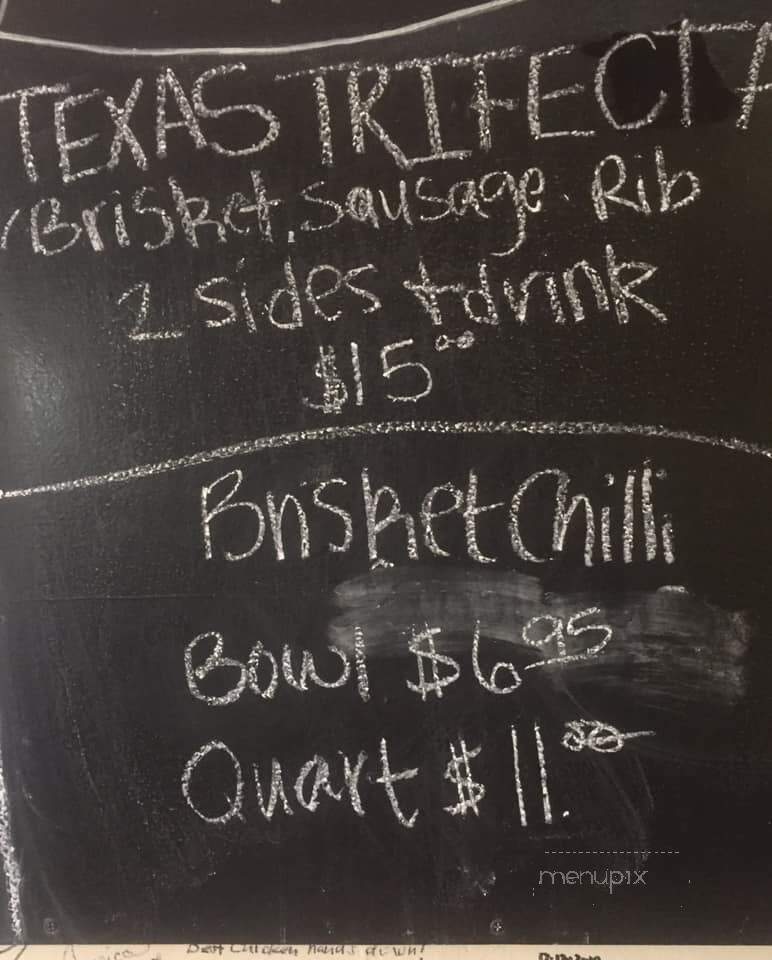 TEXAS TRIFECTA
Brisket, Sausage, Rib
2 sides + drink
$15.00
Brisket Chilli
Bowl $6.95
Quart $11.00
menupix
Best Chicken hands down!